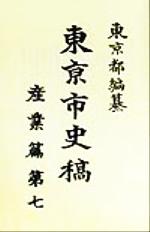 東京都編纂
東京市史稿
産業篇第七